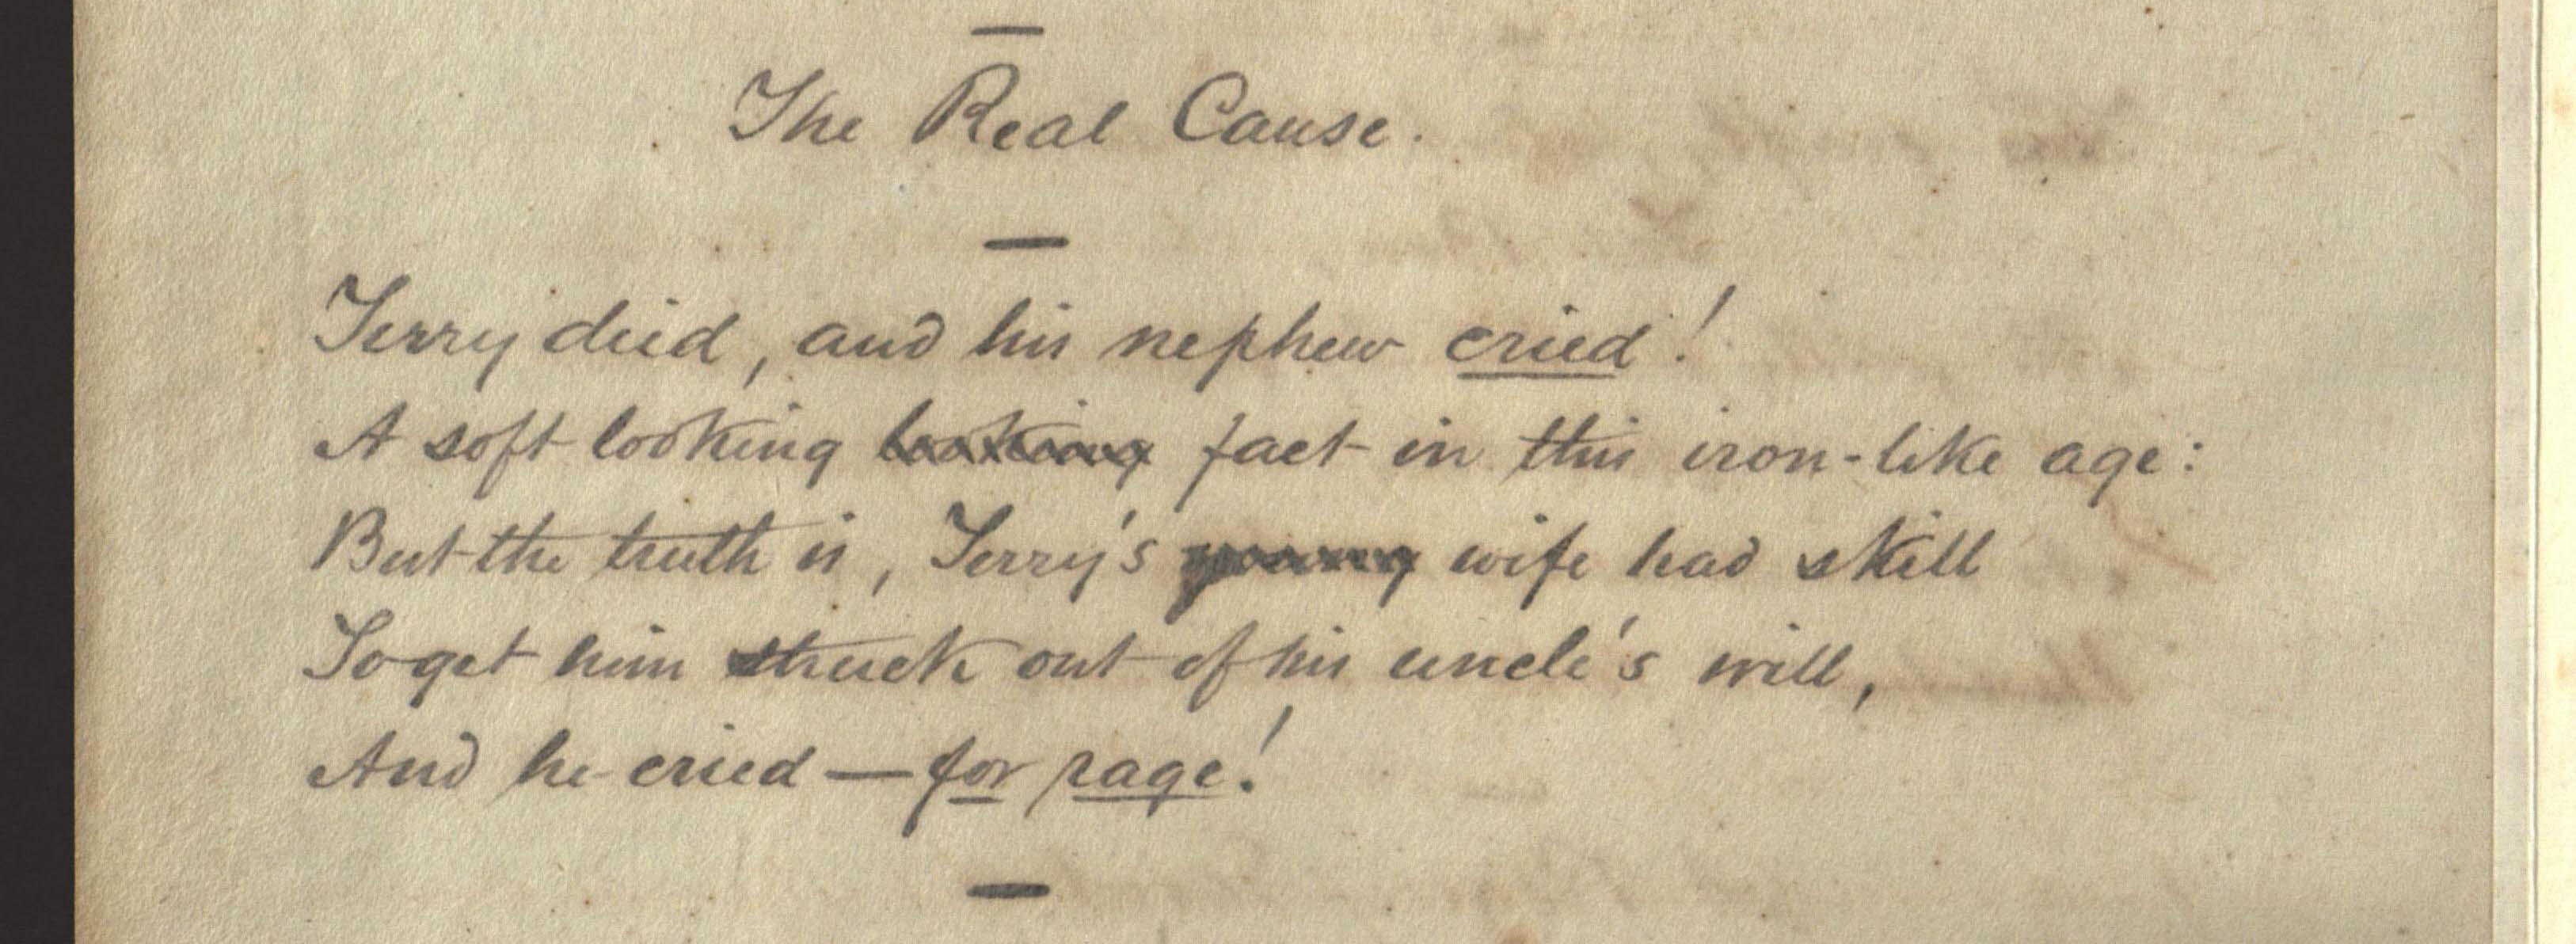 The Real Cause.
Terry died, and his nephew cried!
A soft looking looking fact in this iron-like age:
But the truth is, Terry's young wife had skill
To get him struck out of his uncle's will,
And he cried — for rage!